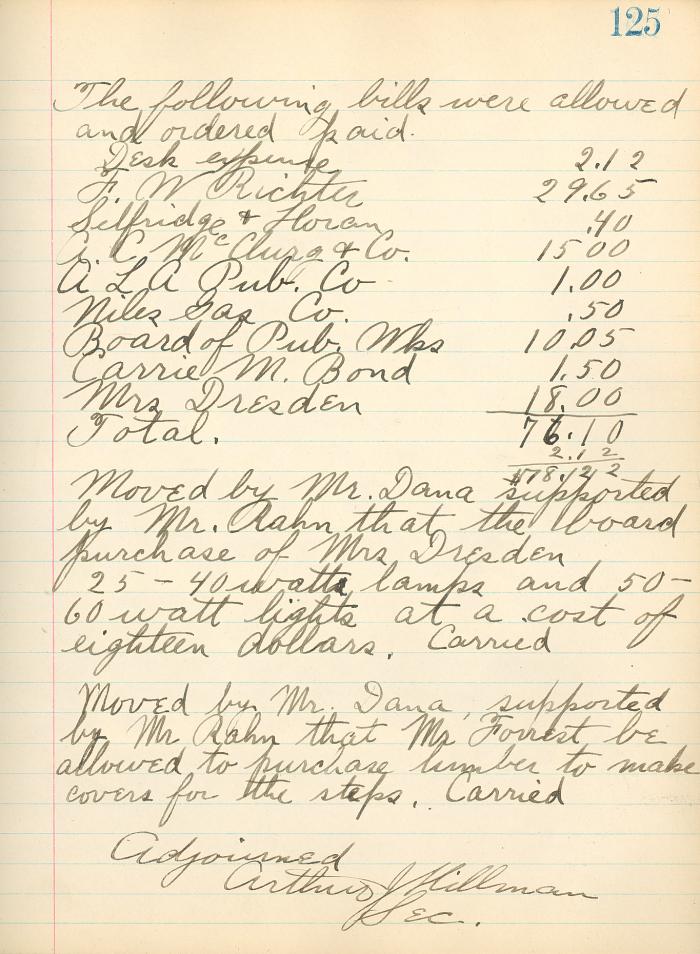 125
The following bills were allowed
and ordered paid.
Desk expense 2.12
F. W Richter 29.65
Selfridge & Horan .40
A. C McClurg & Co. 15 00
A L A Pub. Co 1.00
Niles Gas Co. .50
Board of Pub. Wks 10.05
Carrie M. Bond 1.50
Mrs Dresden 18.00
Total. 76.10
2.12
$78.22
Moved by Mr. Dana supported
by Mr. Rahn that the board
purchase of Mrs Dresden
25 - 40 watts lamps and 50 -
60 watt lights at a cost of
eighteen dollars. Carried
Moved by Mr. Dana, supported
by Mr Rahn that Mr Forrest be
allowed to purchase lumber to make
covers for the steps. Carried
Adjourned
Arthur J Hillman
Sec.